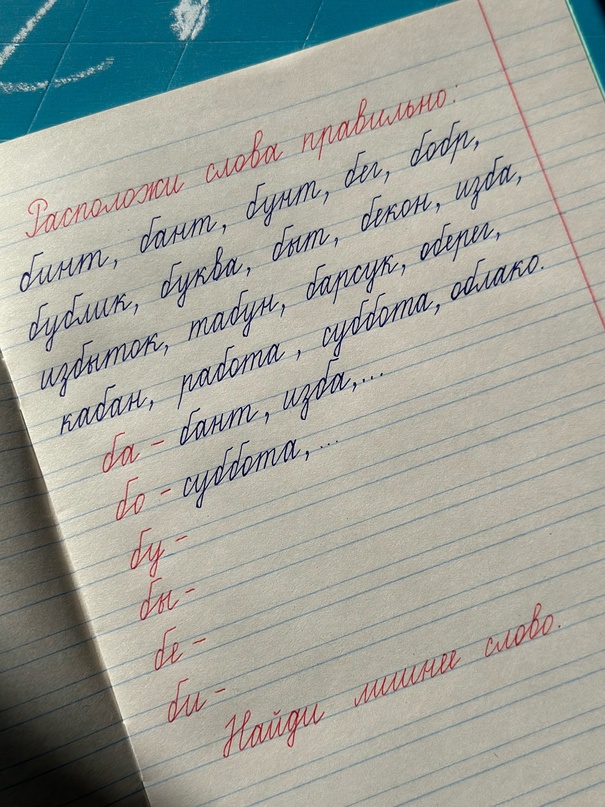 Расположи слова правильно:
бинт, бант, бунт, бег, бобр,
бублик, буква, быт, бекон, изба,
избыток, табун, барсук, оберег,
кабан, работа, суббота, облако.
ба - бант, изба,...
бо - суббота,...
бу -
бы -
бе -
би -
Найди лишнее слово.